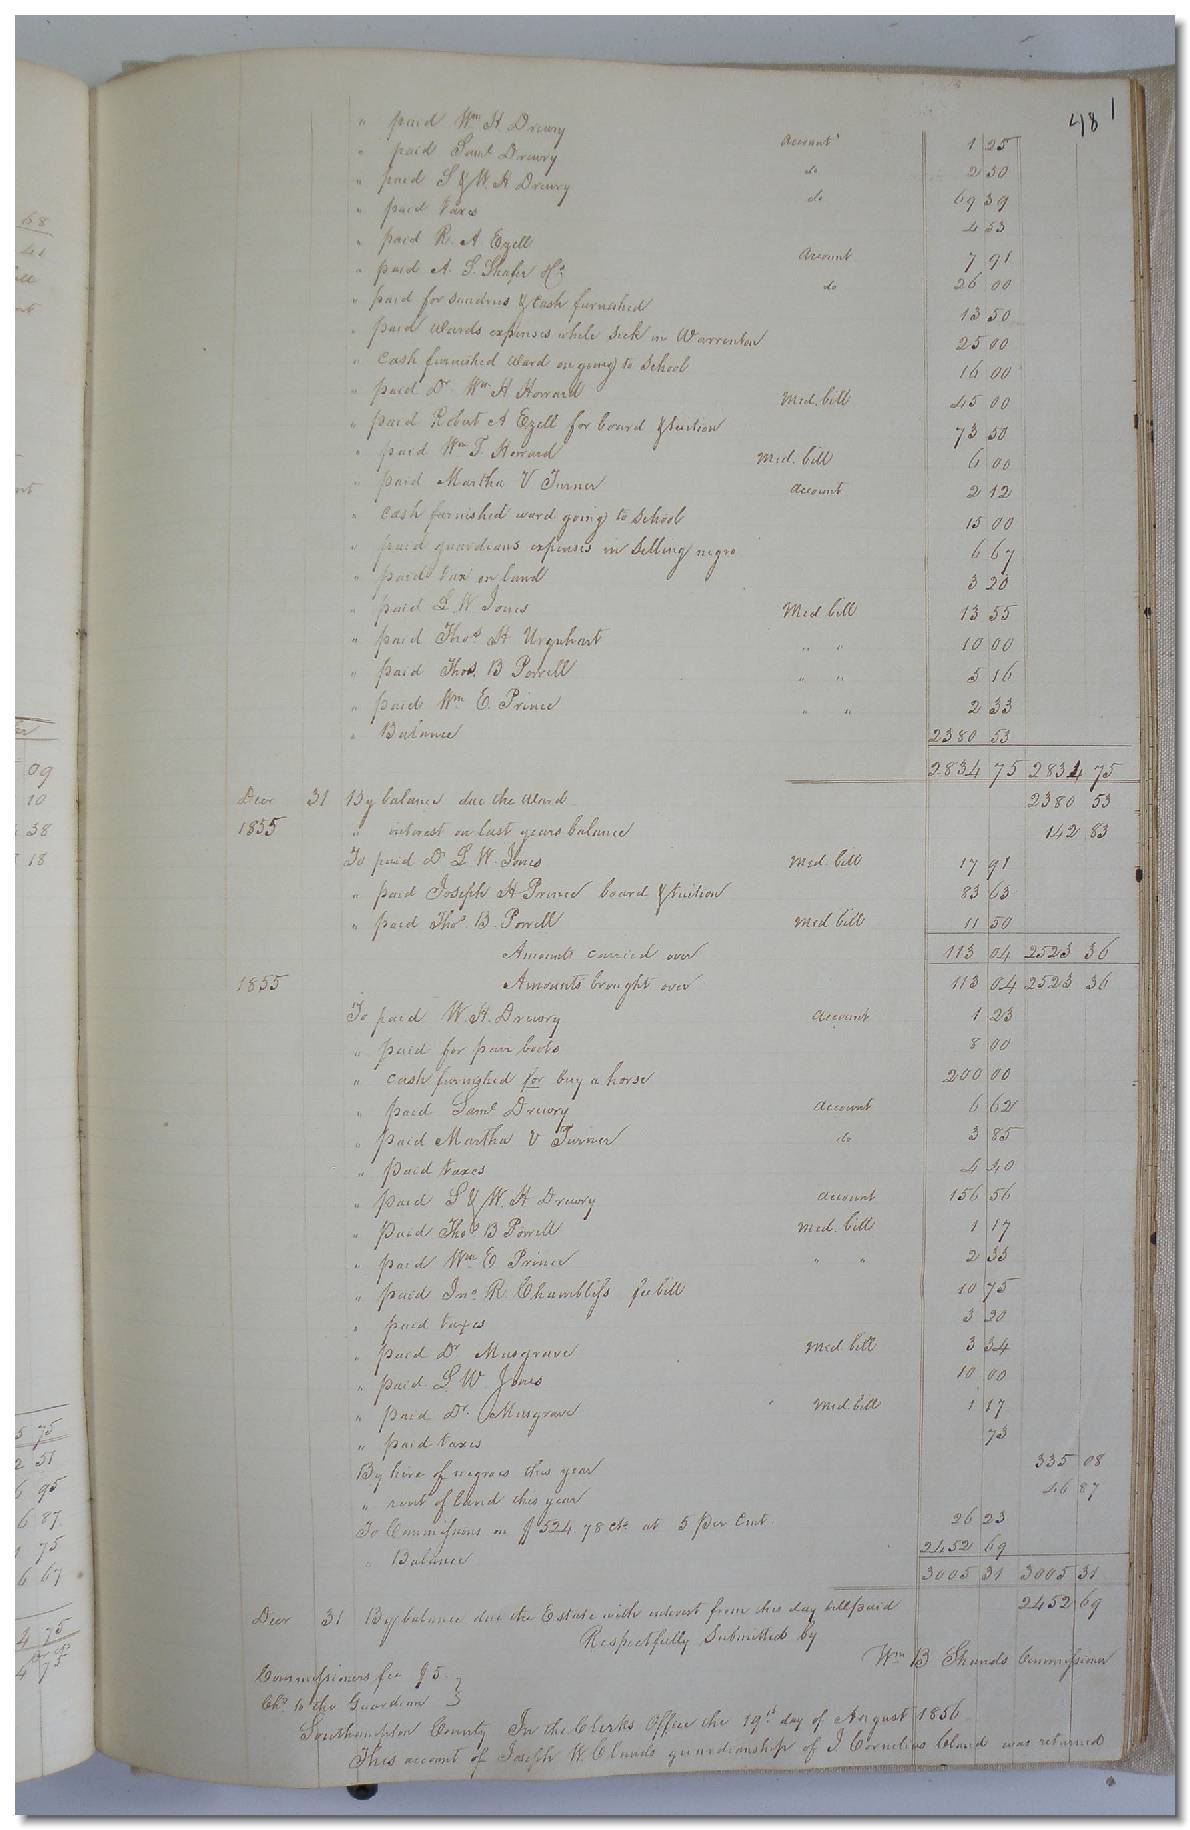 481
" paid Wm H. Drewry Account 1 25
" paid Saml Drewry do 2 50
" paid S & W. H Drewry do 69 39
" paid taxes 4 53
" paid R. A Ezell Account 7 91
" paid A. S. Shafer do 26 00
" paid for sundries & cash furnished 13 50
" paid wards expenses while sick in Warrenton 25 00
" cash furnished ward on going to School 16 00
" paid Dr. Wm H Howard Med. bill 45 00
" paid Robert A Ezell for board & tuition 73 50
" paid Wm T. Howard Med. bill 6 00
" paid Martha V Turner Account 2 12
" cash furnished ward going to School 15 00
" paid guardians expenses in selling negro 6 67
" paid tax on land 3 20
" paid L. W. Jones Med. bill 13 55
" paid Thos H Urquhart " " 10 00
" paid Thos. B Powell " " 5 16
" paid Wm E. Prince " " 2 33
" Balance 2380 53
2834 75 2834 75
Decr 31 By balance due the Ward 2380 53
1855 " interest on last years balance 142 83
To paid Dr L. W. Jones Med. bill 17 91
" paid Joseph H Prince board & tuition 83 63
" paid Thos B. Powell Med bill 11 50
Amounts carried over 113 04 2523 36
1855 Amounts brought over 113 04 2523 36
To paid W. H. Drewry Account 1 23
" paid for pair boots 8 00
" cash furnished for buy a horse 200 00
" paid Saml Drewry Account 6 62
" paid Martha V Turner do 3 85
" paid taxes 4 40
" paid S & W. H Drewry Account 156 56
" paid Thos B Powell Med. bill 1 17
" paid Wm E Prince " " 2 33
" paid Jno. R. Chambliss fee bill 10 75
" paid taxes 3 20
" paid Dr Musgrave Med. bill 3 34
" paid L. W. Jones 10 00
" paid Dr. Musgrave Med bill 1 17
" paid taxes 73
By hire of negroes this year 335 08
" rent of land this year 46 87
To Commissions on $524.78 cts at 5 per Cent 26 23
" Balance 2452 69
3005 31 3005 31
Decr 31 By balance due the Estate with interest from this day till paid 2452 69
Respectfully Submitted by
Wm B Shands Commissioner
Commissioners fee $5.
Chd. to the Guardian
Southampton County In the Clerks Office the 19th day of August 1856
This account of Joseph W. Clauds guardianship of J Cornelius Claud was returned